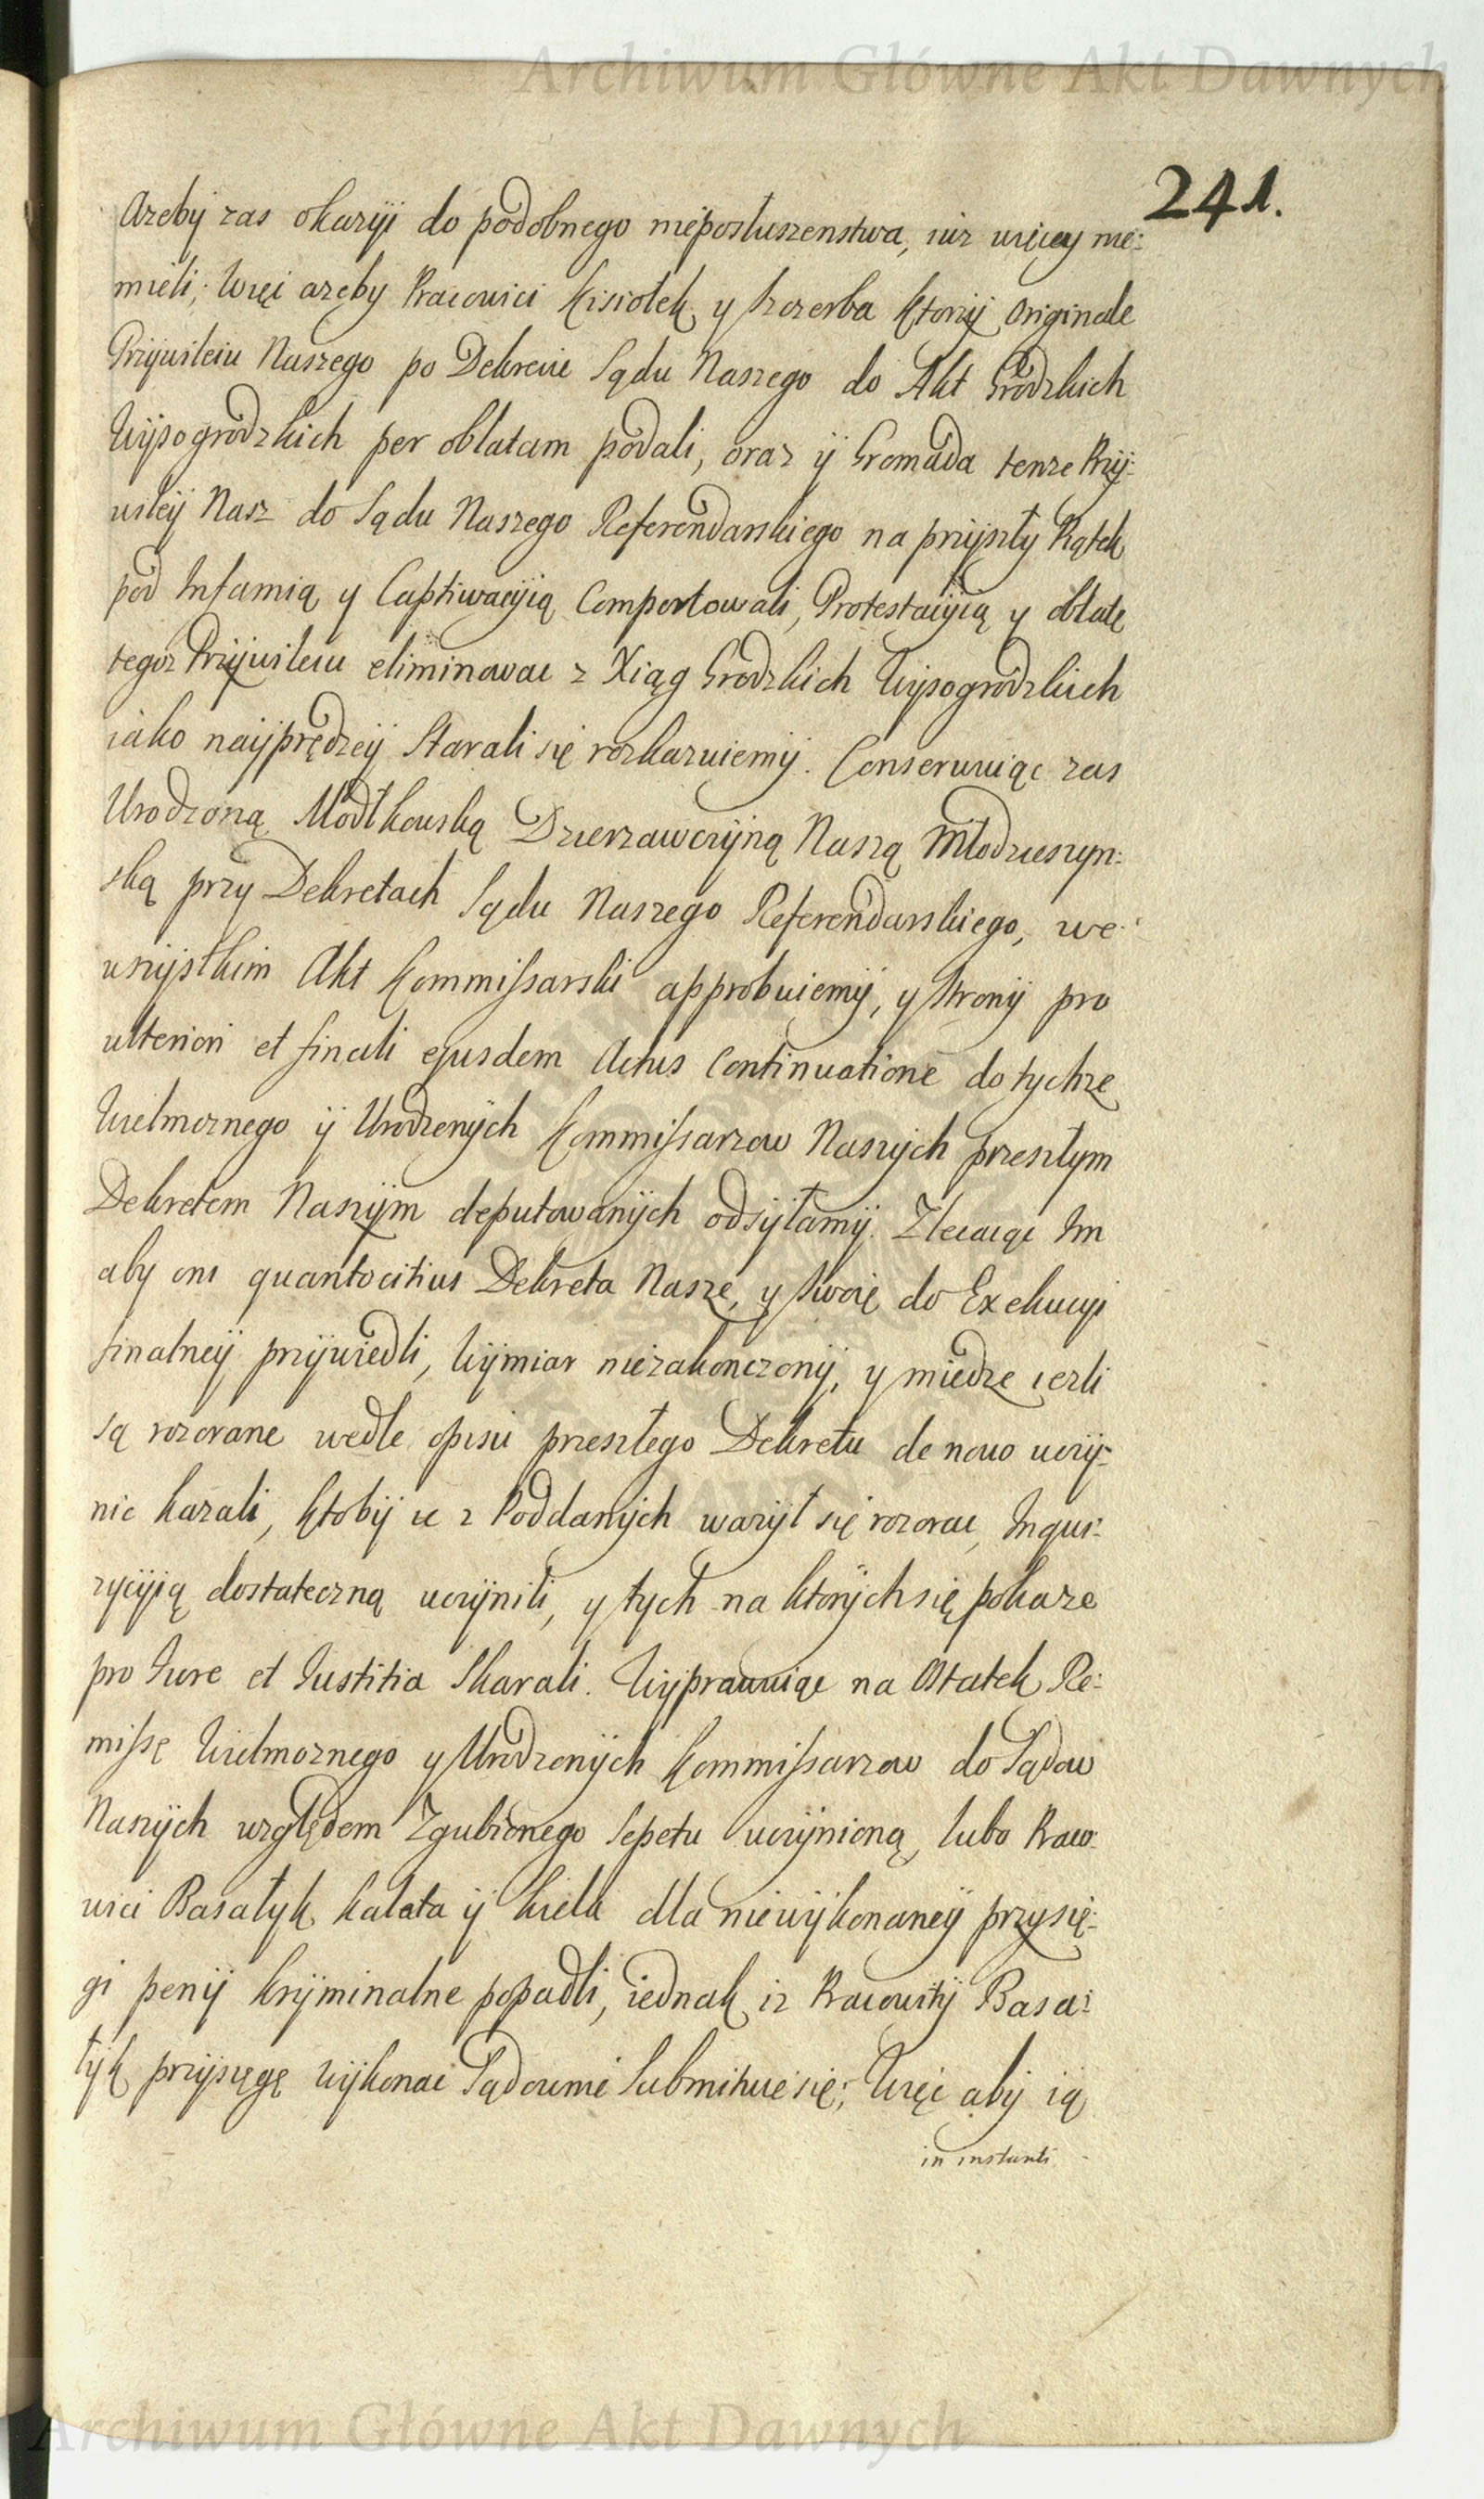 Archiwum Główne Akt Dawnych
241.
Azeby zas okazyi do podobnego nieposłuszenstwa, iuz więcey nie:
mieli; Więc azęby Pracowici Kisiołek y Szczerba ktorzy Originale
Przywileiu Naszego po Dekrecie Sądu Naszego do Akt Grodzkich
Wyszogrodzkich per oblatam podali, oraz ÿ Gromada tenze Przy:
wiley Nasz do Sądu Naszego Referendarskiego na przyszły Piątek
pod Infamią y Captiwacyią Comportowali, Protestacyią y oblatę
tegoz Przywileiu eliminowac z Xiąg Grodzkich Wyszogrodzkich
iako nayprędzey Starali się rozkazuiemy. Conserwuiąc zas
Urodzoną Modłkowską Dzierzawczyną Naszą Młodzieszyn:
ską przy Dekretach Sądu Naszego Referendarskiego, we:
wszystkim Akt Kommissarski approbuiemy, y Strony pro
ulteriori et finali ejusdem Actus Continuatione do tychze
Wielmoznego ÿ Urodzonych Kommissarzow Naszych przeszłym
Dekretem Naszym deputowanych odsyłamy. Zlecaiąc Im
aby oni quantocitius Dekreta Nasze, y Swoię do Exekucyi
finalney przywiedli, Wymiar niezakonczony, y miedze iezli
są rozorane wedle opisu przeszłego Dekretu de novo uczy:
nic kazali, ktoby ie z Poddanych wazył się rozorac, Inqui:
zycyią dostateczną uczynili, y tych na ktorych się pokaze
pro Iure et Iustitia Skarali. Wyprawuiąc na Ostatek Re:
missę Wielmoznego y Urodzonych Kommissarzow do Sądow
Naszych względem Zgubionego Sepetu uczynioną, lubo Praco:
wici Basałyk Kalata ÿ Kielu dla niewykonaney przysię:
gi peny kryminalne popadli, iednak iz Pracowity Basa:
łyk przysięgę wykonac Sądownie Submituie się; Więc aby ią
in instanti
Archiwum Główne Akt Dawnych